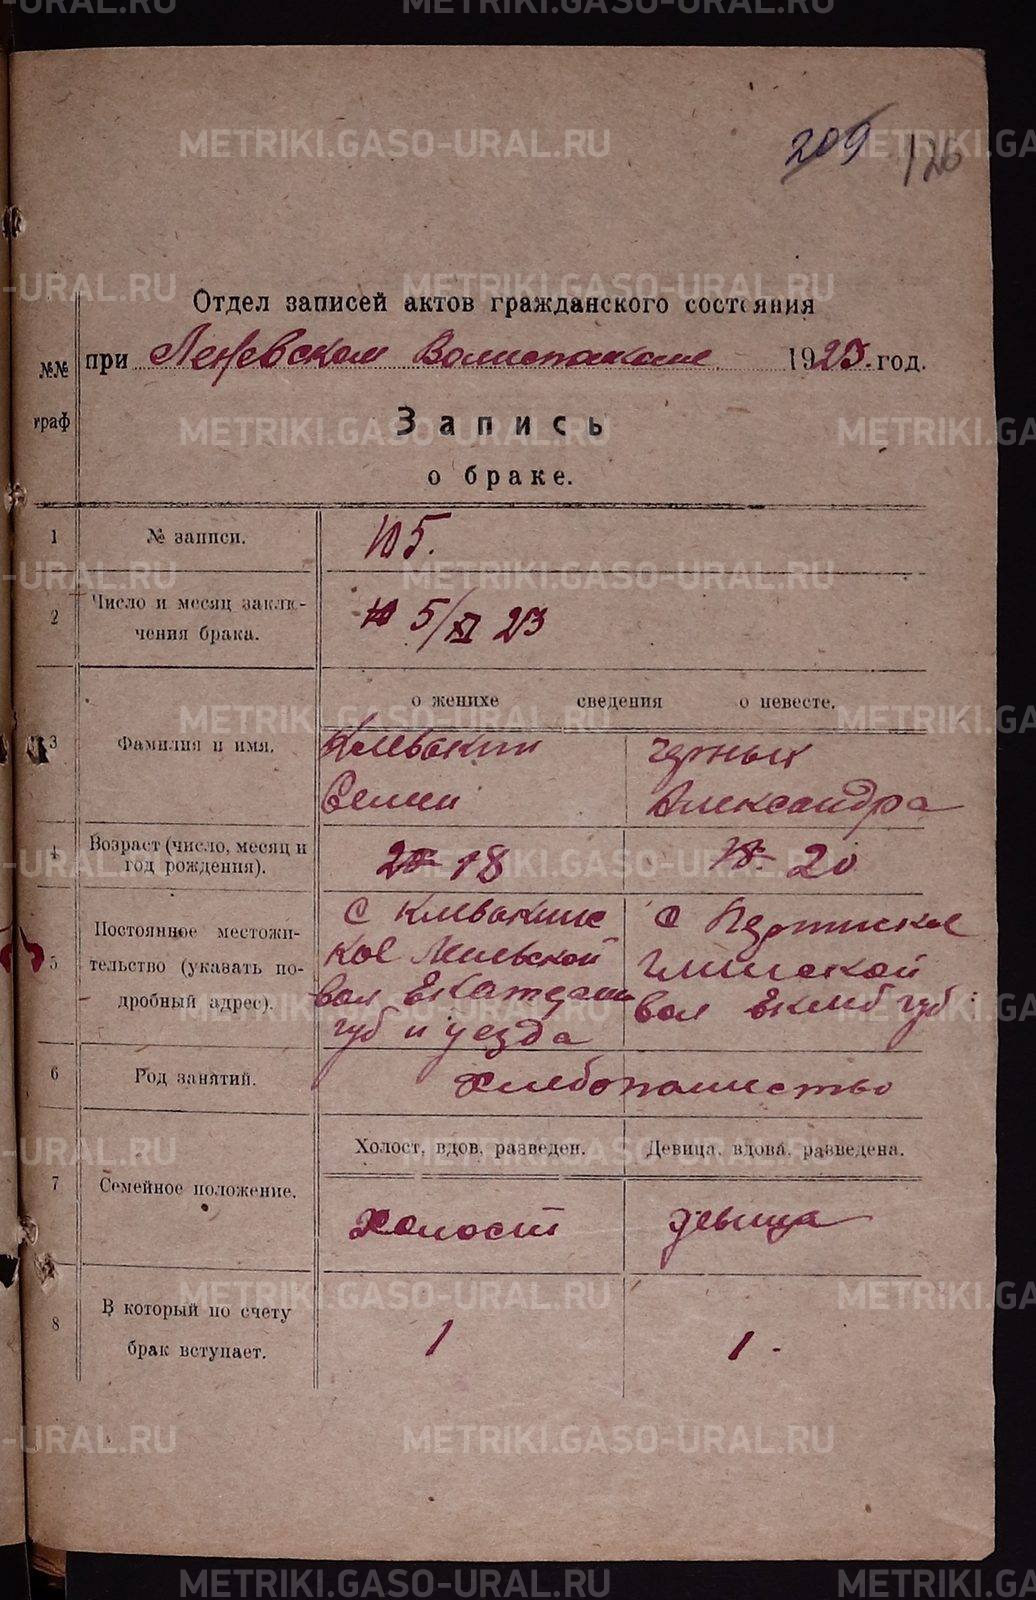 209 126
Отдел записей актов гражданского состояния
при Леневском Волисполкоме 1923 год.
№№ граф
Запись
о браке.
1 № записи. 105.
2 Число и месяц заключения брака. 5/XI 23
о женихе сведения о невесте.
3 Фамилия и имя. Клевакин Черных
Семен Александра
4 Возраст (число, месяц и год рождения). 18 20
5 Постоянное местожи- с Клевакинс с
тельство (указать по- кое Глинской
дробный адрес). вол Екатерин вол Екмб губ
губ и уезда
6 Род занятий. хлебопашество
Холост, вдов, разведен. Девица, вдова, разведена.
7 Семейное положение. Холост девица
8 В который по счету
брак вступает. 1 1.
METRIKI.GASO-URAL.RU